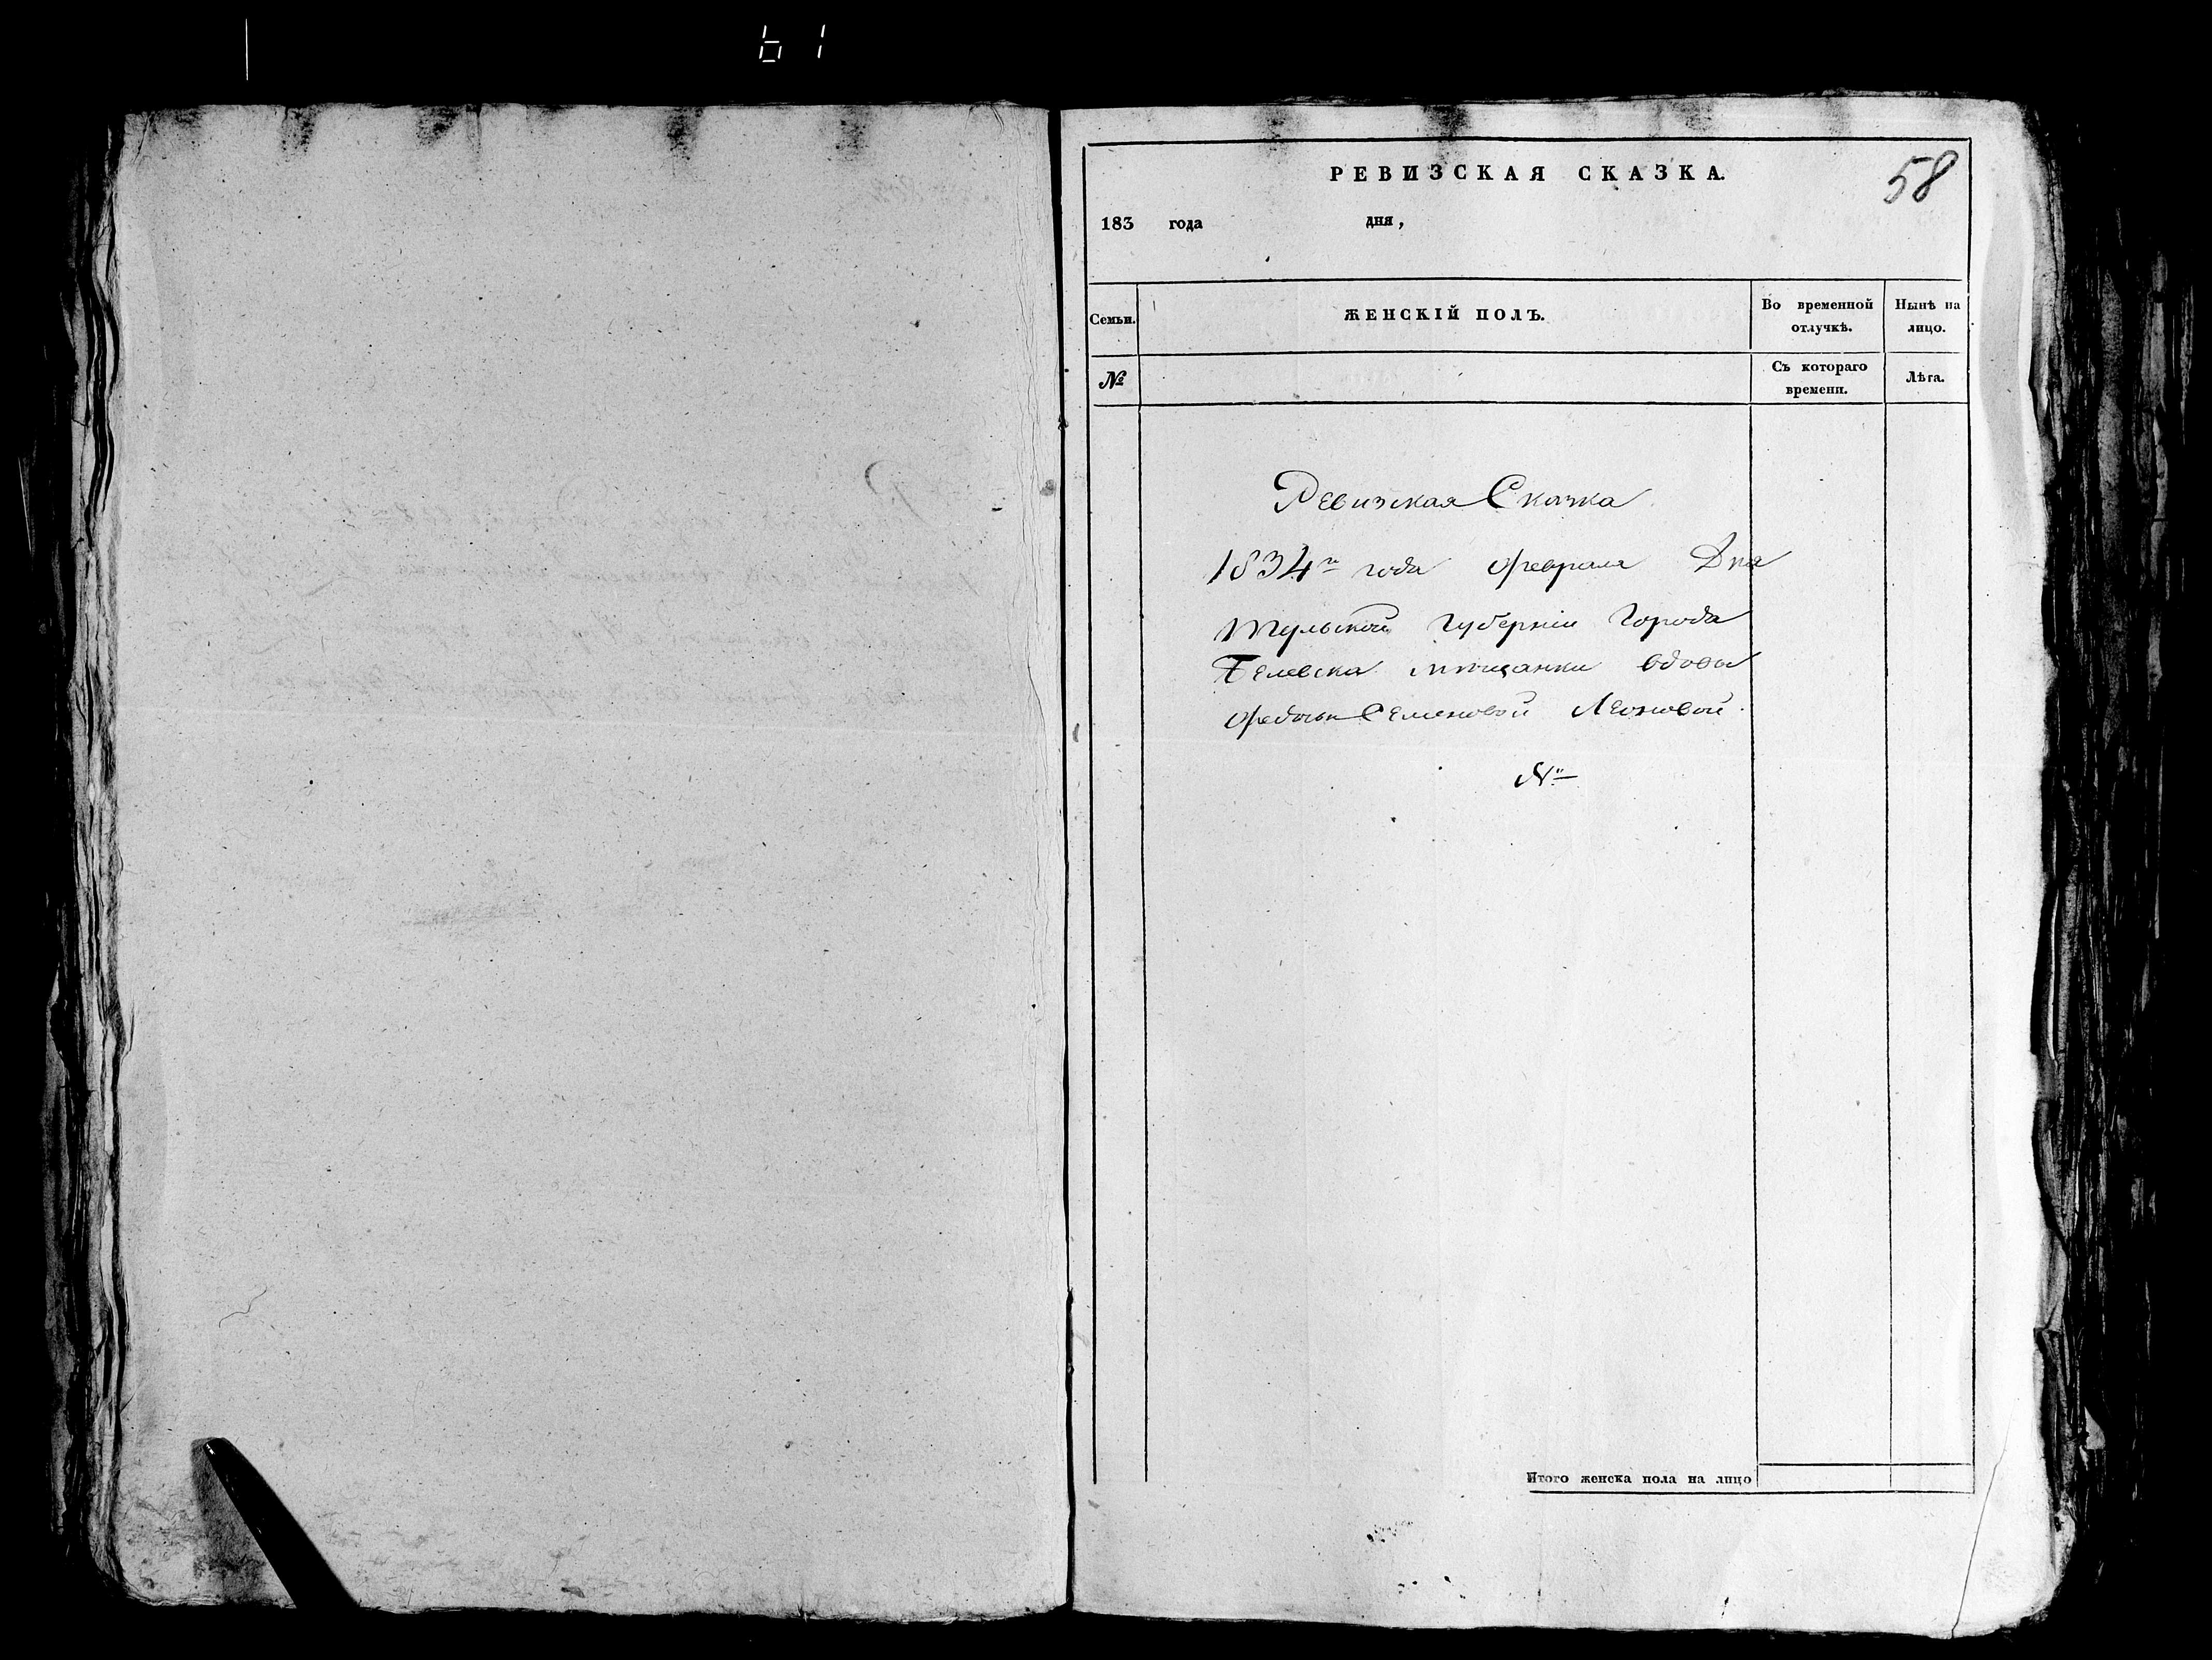 61
РЕВИЗСКАЯ СКАЗКА.
58
183 года дня,
Семьи.
ЖЕНСКІЙ ПОЛЪ.
Во временной отлучкѣ.
Нынѣ на лицо.
№
Съ котораго времени.
Лѣта.
Ревизская Сказка
1834го года февраля Дня
Тульской губерніи Города
Белевска мѣщанки вдовы
Федосьи Семеновой Леоновой.
№
Итого женска пола на лицо